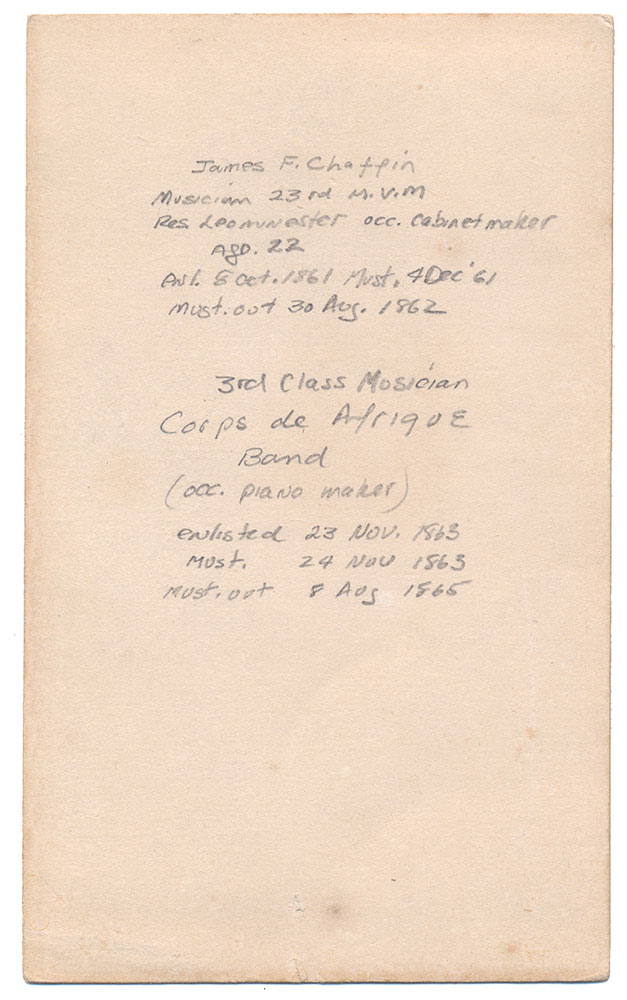 James F. Chaffin
Musician 23rd M.V.M
Res. Leominester occ. cabinet maker
age. 22
Enl. 8 Oct. 1861 Must. 4 Dec '61
Must. out 30 Aug. 1862
3rd Class Musician
Corps de Afrique
Band
(occ. piano maker)
enlisted 23 Nov. 1863
Must. 24 Nov 1863
Must. out 8 Aug 1865